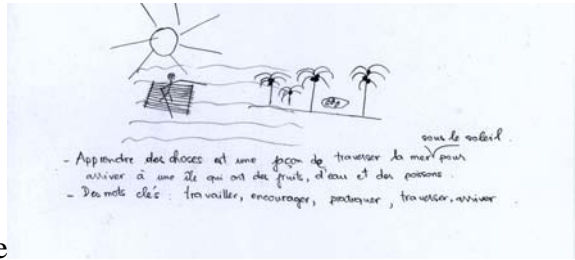 sous le soleil.
- Apprendre des choses est une façon de traverser la mer pour
arriver à une île qui ont des fruits, d'eau et des poissons.
- Des mots clés : travailler, encourager, pratiquer, traverser, arriver.
e